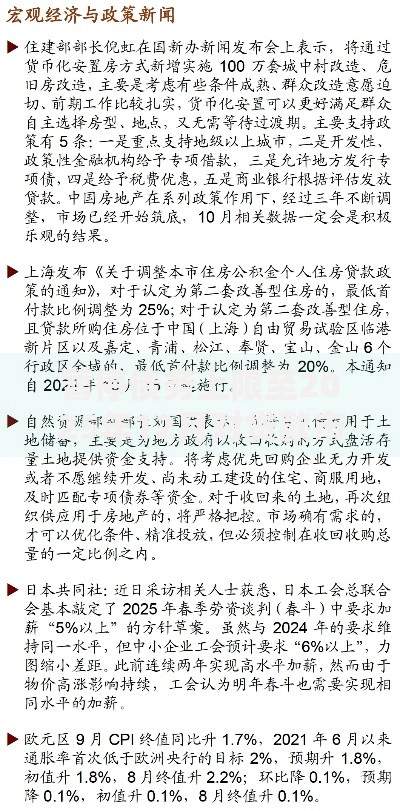 宏观经济与政策新闻
▶ 住建部部长倪虹在国新办新闻发布会上表示，将通过
货币化安置房方式新增实施 100 万套城中村改造、危
旧房改造，主要是考虑有些条件成熟、群众改造意愿迫
切、前期工作比较扎实，货币化安置可以更好满足群众
自主选择房型、地点，又无需等待过渡期。主要支持政
策有 5 条：一是重点支持地级以上城市，二是开发性、
政策性金融机构给予专项借款，三是允许地方发行专
项债，四是给予税费优惠，五是商业银行根据评估发放
贷款。中国房地产在系列政策作用下，经过三年不断调
整，市场已经开始筑底，10 月相关数据一定会是积极
乐观的结果。
▶ 上海发布《关于调整本市住房公积金个人住房贷款政
策的通知》，对于认定为第二套改善型住房的，最低首
付款比例调整为 25%；对于认定为第二套改善型住房，
且贷款所购住房位于中国（上海）自由贸易试验区临港
新片区以及嘉定、青浦、松江、奉贤、宝山、金山 6 个
行政区全域的，最低首付款比例调整为 20%。本通知
自 202 年 月 施行。
▶ 自然资源部 部 刘国 表 用于土
地储备，主要是为地方政府以收回收购的方式盘活存
量土地提供资金支持。将考虑优先回购企业无力开发
或者不愿继续开发、尚未动工建设的住宅、商服用地，
及时匹配专项债券等资金。对于收回来的土地，再次组
织供应用于房地产的，将严格把控。市场确有需求的，
才可以优化条件、精准投放，但必须控制在收回收购总
量的一定比例之内。
▶ 日本共同社：近日采访相关人士获悉，日本工会总联合
会基本敲定了 2025 年春季劳资谈判（春斗）中要求加
薪“5%以上”的方针草案。虽然与 2024 年的要求维
持同一水平，但中小企业工会预计要求“6%以上”，力
图缩小差距。此前连续两年实现高水平加薪，然而由于
物价高涨影响持续，工会认为明年春斗也需要实现相
同水平的加薪。
▶ 欧元区 9 月 CPI 终值同比升 1.7%，2021 年 6 月以来
通胀率首次低于欧洲央行的目标 2%，预期升 1.8%，
初值升 1.8%，8 月终值升 2.2%；环比降 0.1%，预期
降 0.1%，初值升 0.1%，8 月终值升 0.1%。